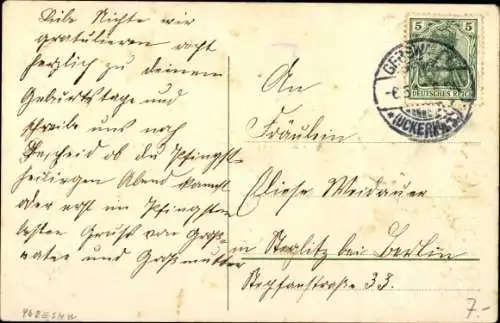 Liebe Nichte wir
gratulieren recht
herzlich zu deinem
Geburtstage und
schreibe uns noch
Bescheid ob du Pfingst-
heiligen Abend kommst
oder erst im Pfingsten
besten Gruß von Groß-
vater und Großmutter
An
Fräulein
Eliese Weidauer
in Steglitz bei Berlin
Stephanstraße 33.
5 5
DEUTSCHES REICH
GERSW
(UCKERM
7.-